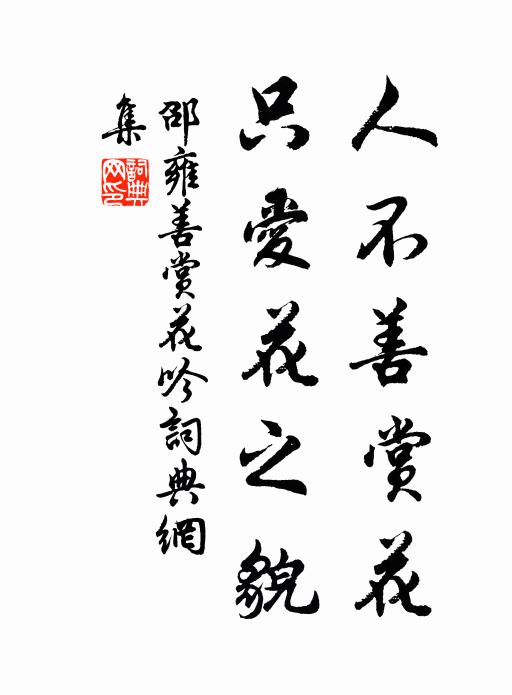 人不善賞花
只愛花之貌
邵雍善賞花吟詞典網
集
詞典
网印